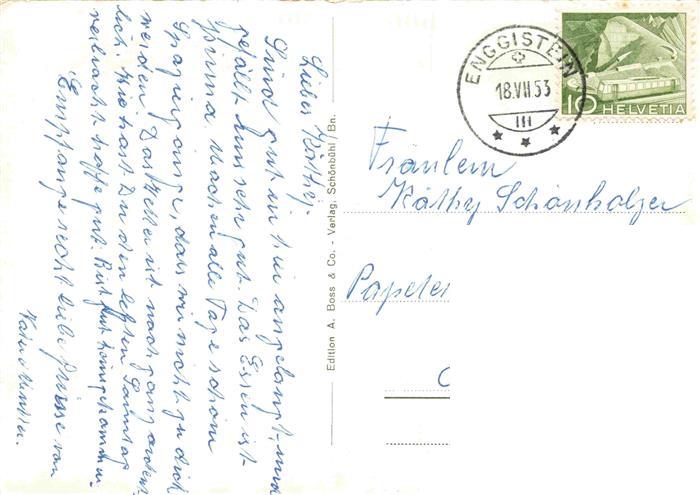 Liebes Käthy.
Sind gut in h in angelangt, und
gefällt uns sehr gut. Das Essen ist
prima. Machen alle Tage schöne
Spaziergänge, dass wir nicht zu dick
werden. Das Wetter ist noch ganz ordent
lich. Wie hast Du den letzten Sonntag
verbracht hoffe gut. Bist gut heimgekommen.
Empfange recht liebe Grüsse von
Vater & Mutter.
Edition A. Boss & Co. - Verlag, Schönbühl / Bn.
ENGGISTEIN
18.VII 53
10 HELVETIA
Fräulein
Käthy Schönholzer
Papeter